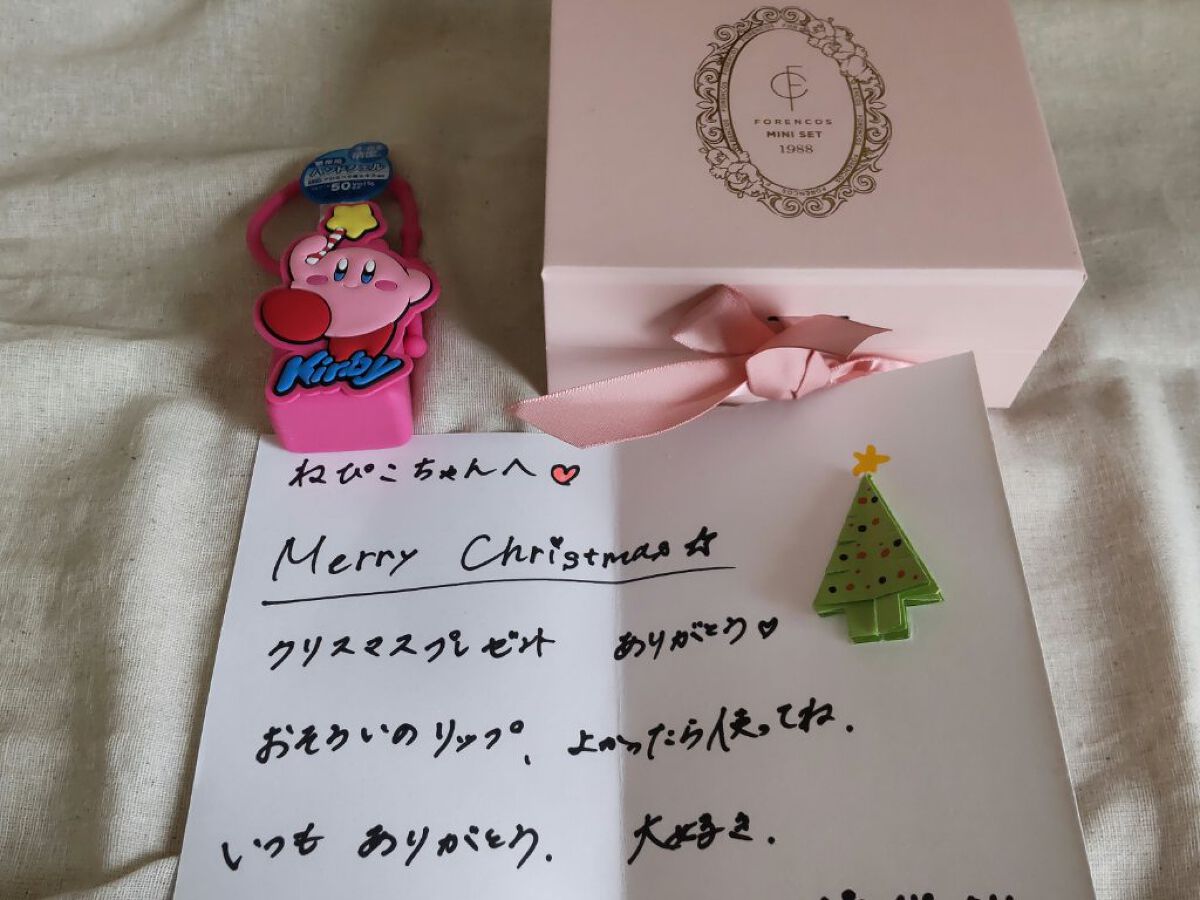 FORENCOS
MINI SET
1988
ハンドジェル
50vol%
Kirby
ねぴこちゃんへ♥
Merry Christmas☆
クリスマスプレゼント ありがとう♡
おそろいのリップ、よかったら使ってね.
いつも ありがとう. 大好き.